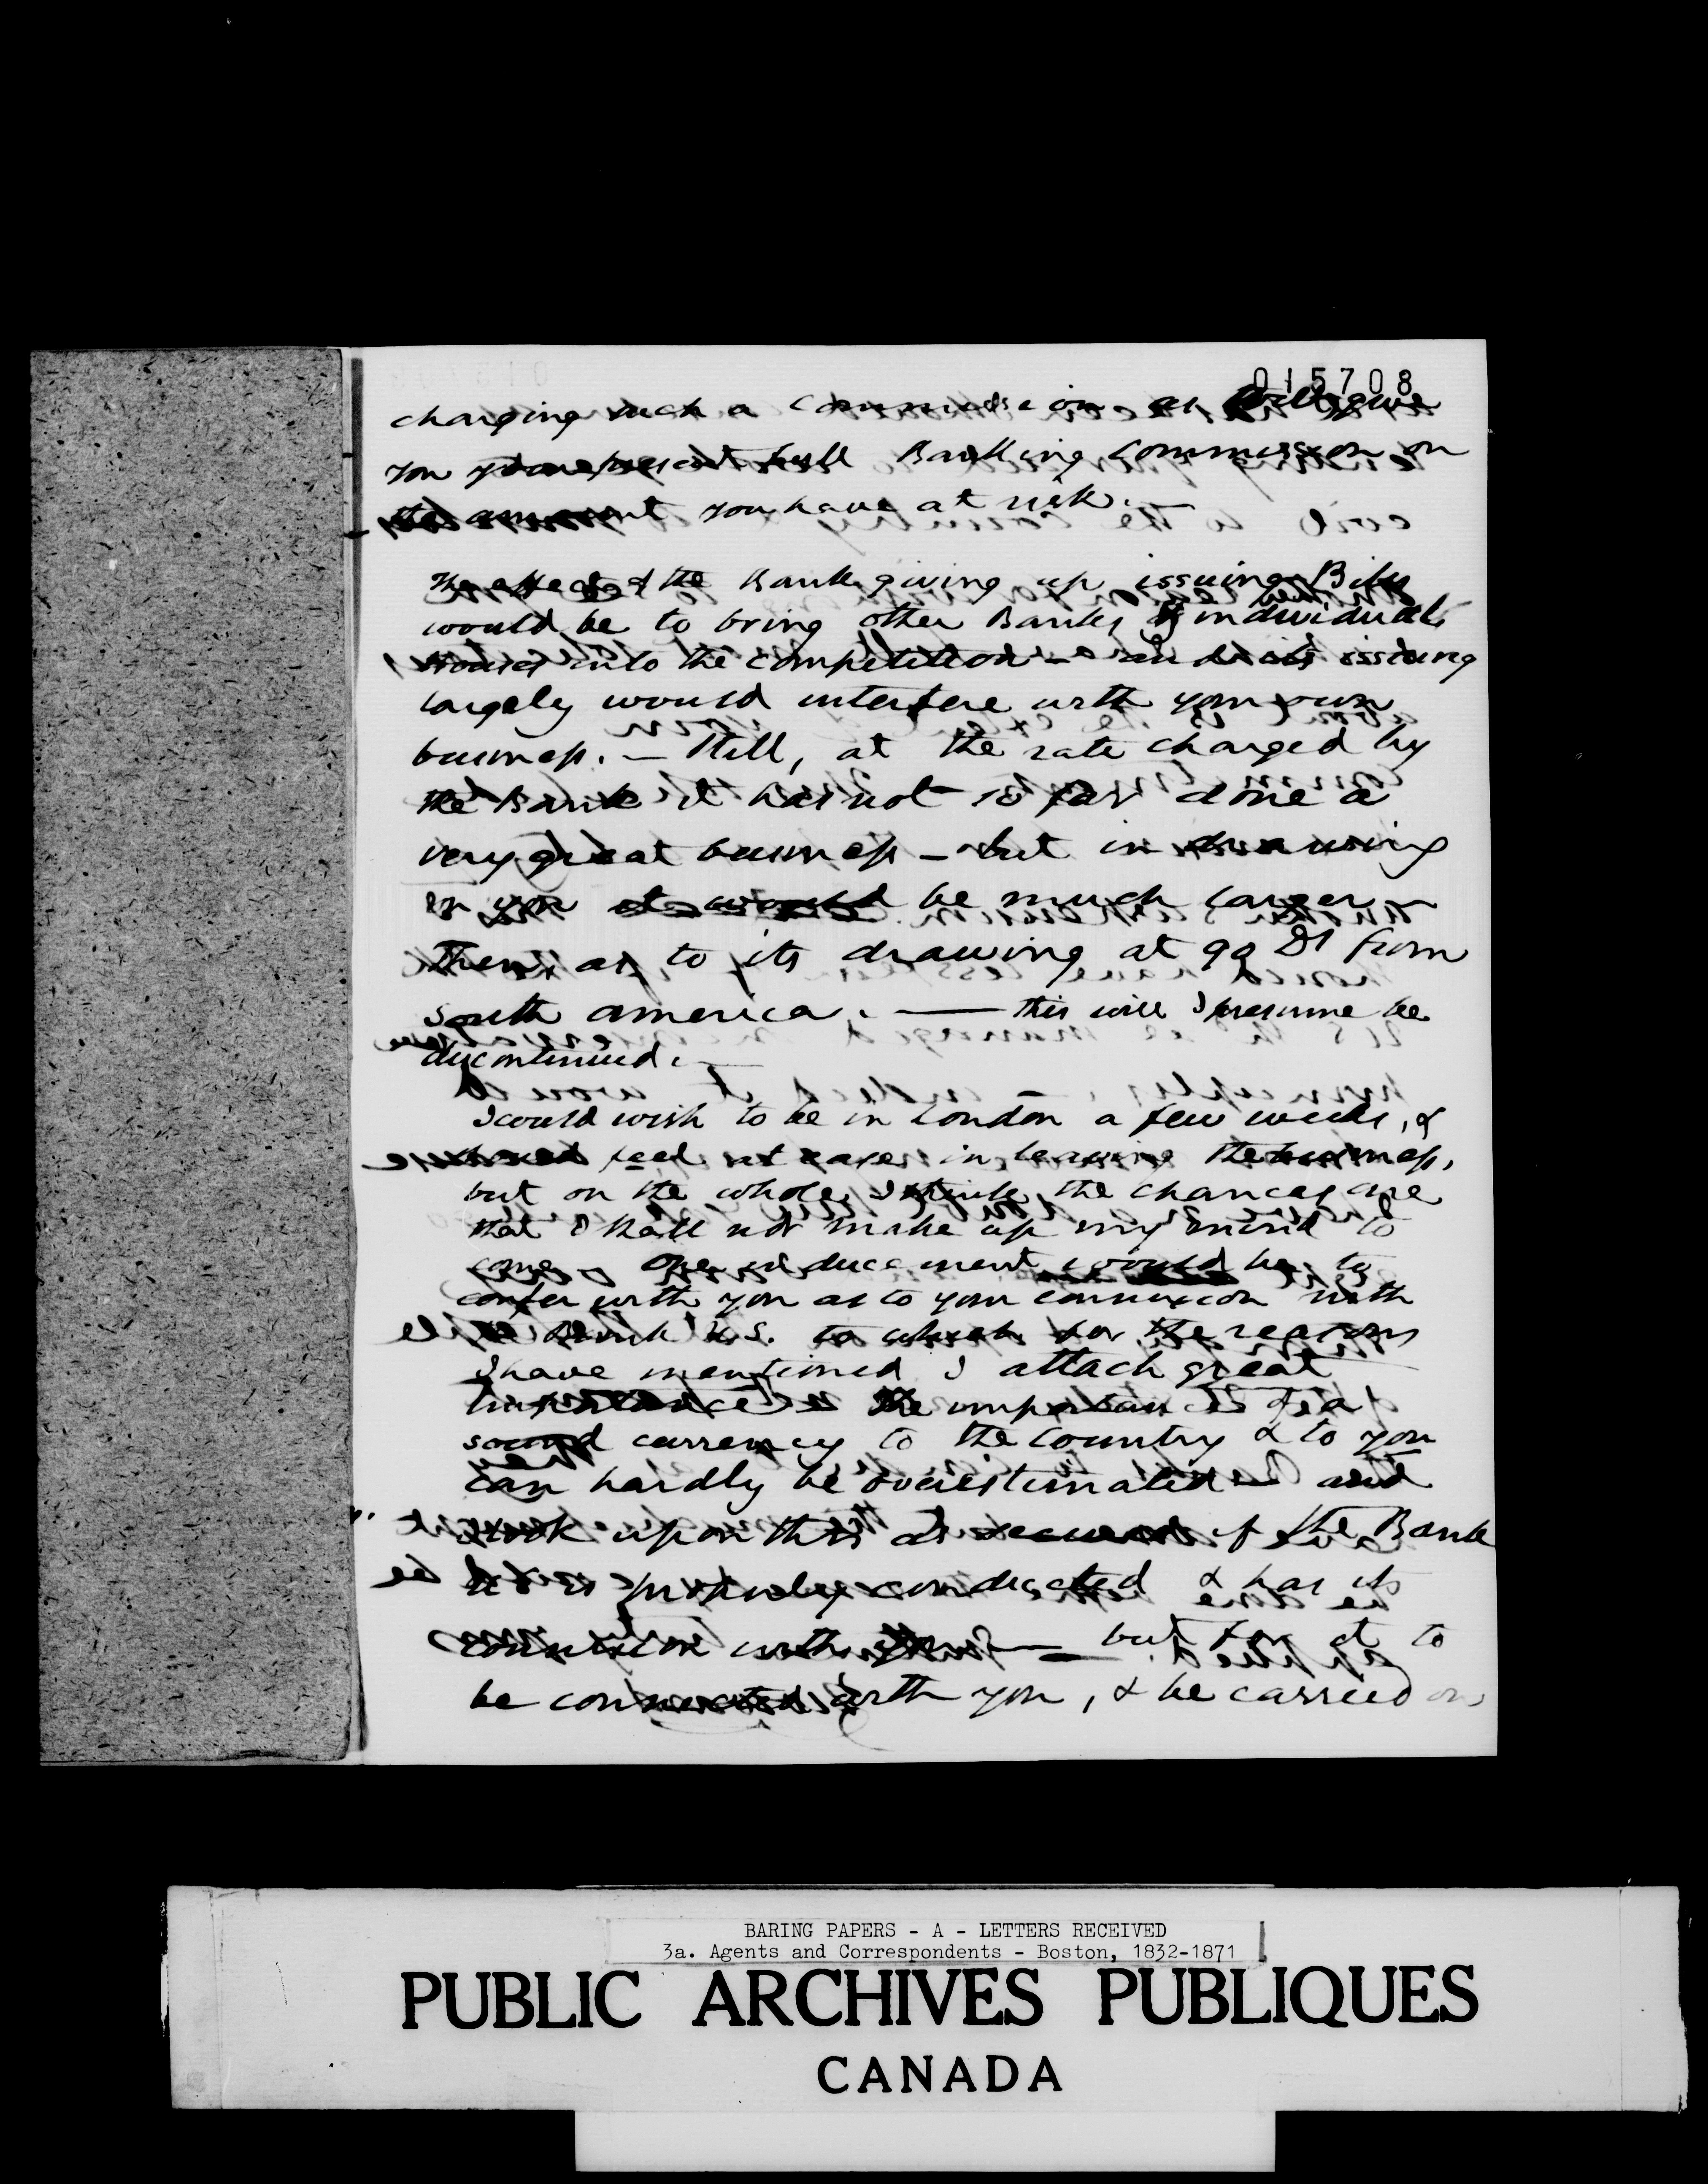 015708
charging such a commission as will give
you your present full Banking Commission on
the amount you have at risk. —
The effect of the Bank giving up issuing Bills
would be to bring other Banks & individual
Houses into the competition — and its issuing
largely would interfere with your own
business. — Still, at the rate charged by
the Bank it has not so far done a
very great business — but in drawing
on you it would be much larger —
Then, as to its drawing at 90 Ds from
South America. — this will I presume be
discontinued. —
I could wish to be in London a few weeks, &
feel at ease in leaving the business,
but on the whole I think the chances are
that I shall not make up my mind to
come. One inducement would be to
confer with you as to your connexion with
the Bank U.S. to which for the reasons
I have mentioned I attach great
importance — the importance of a
sound currency to the country & to you
can hardly be overestimated — and
I look upon this as secured if the Bank
U S is properly conducted & has its
connexion with you — but for it to
be connected with you, & be carried on
BARING PAPERS - A - LETTERS RECEIVED
3a. Agents and Correspondents - Boston, 1832-1871
PUBLIC ARCHIVES PUBLIQUES
CANADA